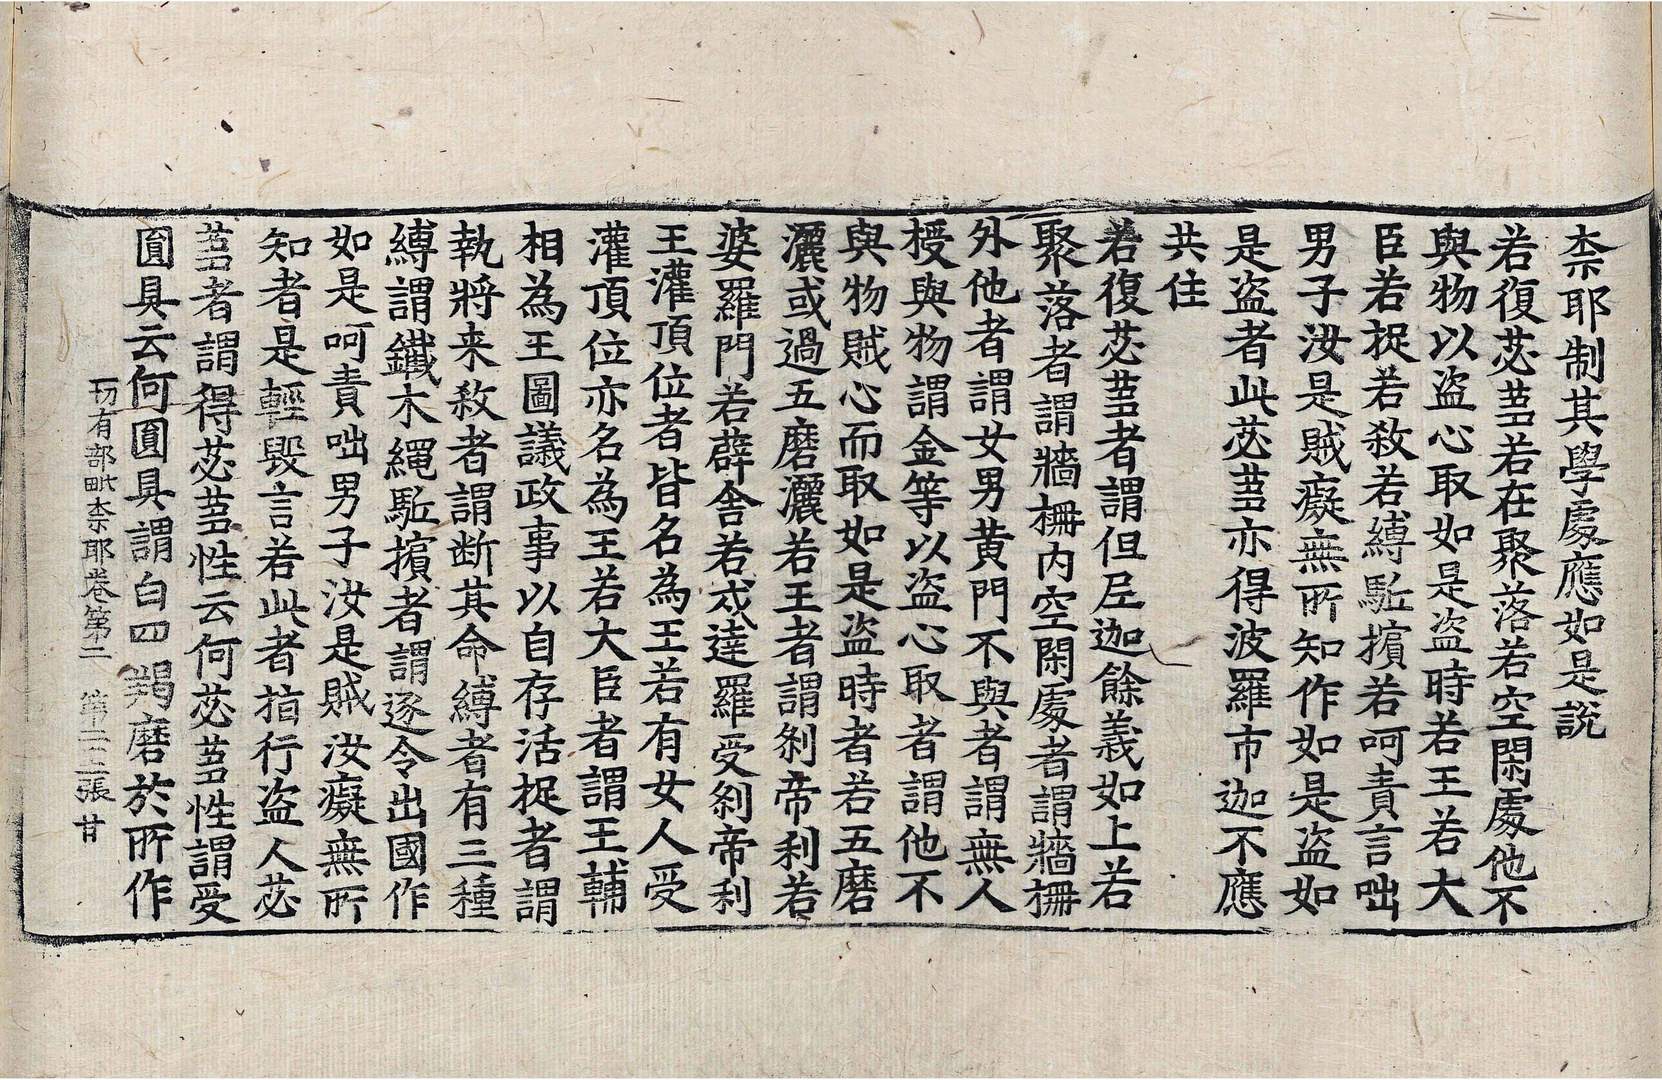 柰耶制其學處應如是說
若復苾蒭若在聚落若空閑處他不
與物以盜心取如是盜時若王若大
臣若捉若殺若縛駈擯若呵責言咄
男子汝是賊癡無所知作如是盜如
是盜者此苾蒭亦得波羅市迦不應
共住
若復苾蒭者謂但㞐迦餘義如上若
聚落者謂牆柵內空閑處者謂牆柵
外他者謂女男黃門不與者謂無人
授與物謂金等以盜心取者謂他不
與物賊心而取如是盜時者若五磨
灑或過五磨灑若王者謂剎帝利若
婆羅門若薜舍若戍達羅受剎帝利
王灌頂位者皆名為王若有女人受
灌頂位亦名為王若大臣者謂王輔
相為王圖議政事以自存活捉者謂
執將来殺者謂断其命縛者有三種
縛謂鐵木繩駈擯者謂逐令出國作
如是呵責咄男子汝是賊汝癡無所
知者是輕毀言若此者指行盜人苾
蒭者謂得苾蒭性云何苾蒭性謂受
圎具云何圎具謂白四羯磨於所作
切有部毗柰耶卷第二 第二十二張 甘